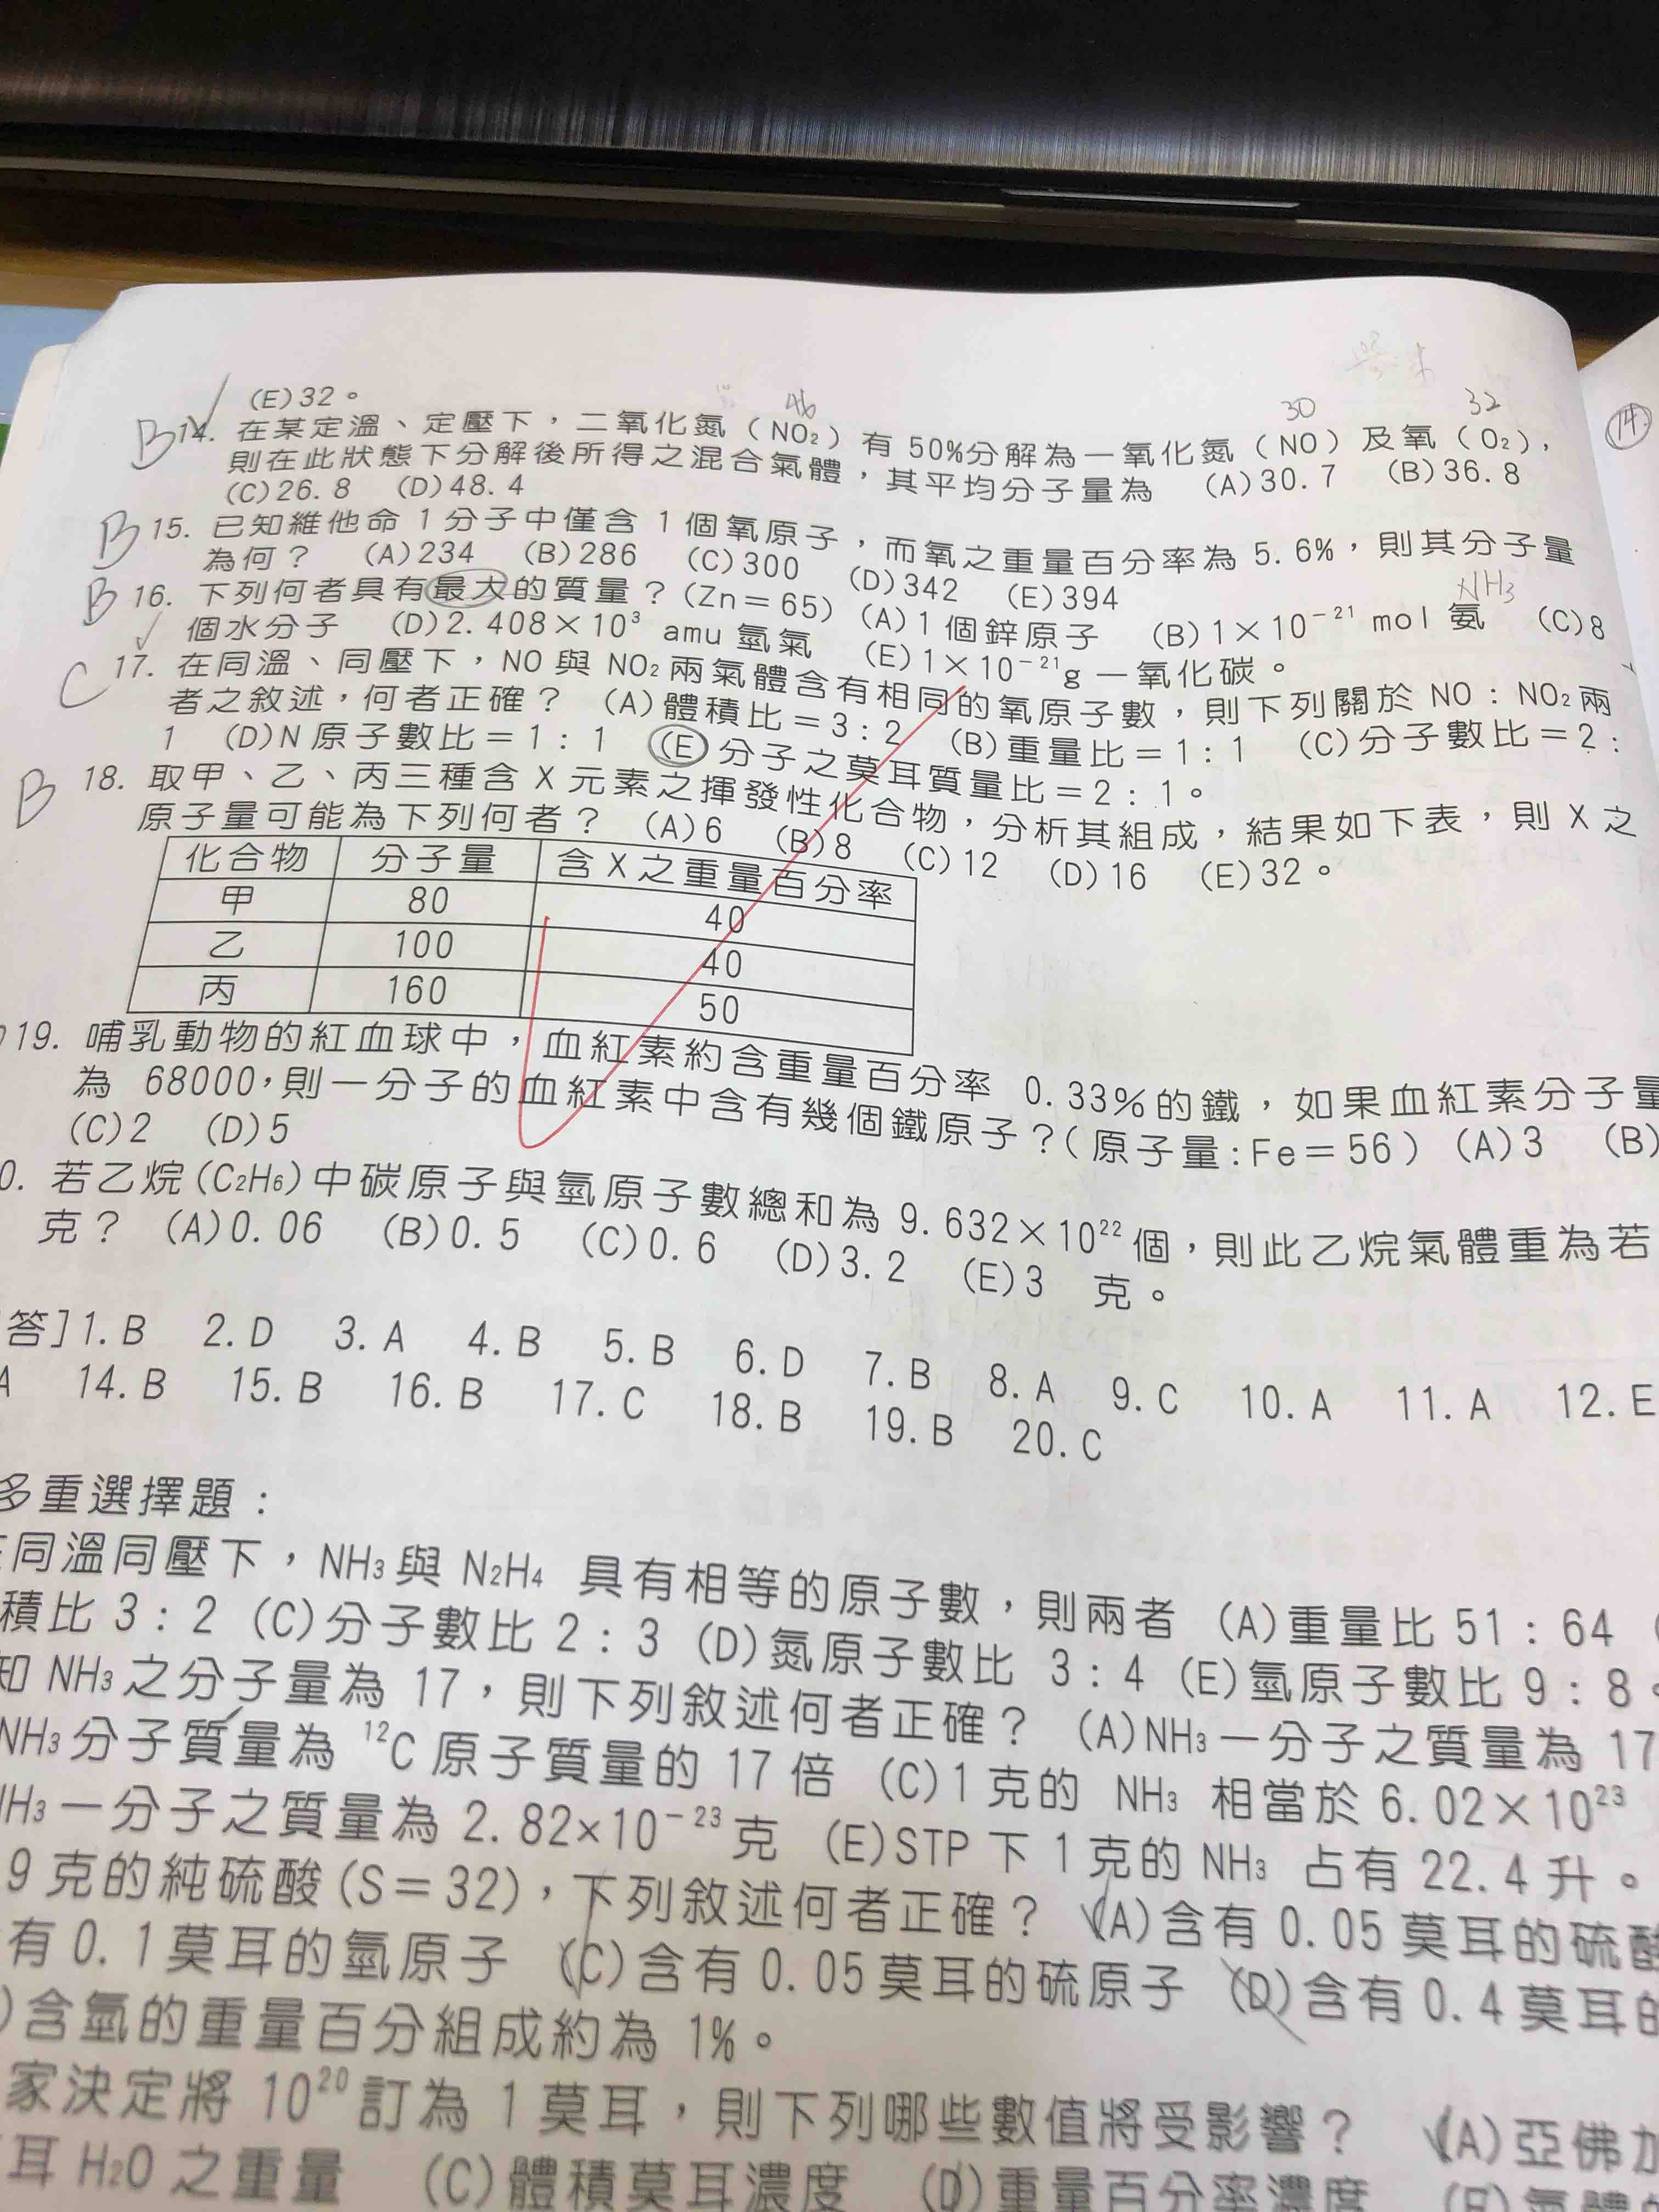 (E)32。
46
30
32
14.
B 14. 在某定溫、定壓下，二氧化氮（NO₂）有 50%分解為一氧化氮（NO）及氧（O₂），
則在此狀態下分解後所得之混合氣體，其平均分子量為 (A)30.7 (B)36.8
(C)26.8 (D)48.4
B 15. 已知維他命 1 分子中僅含 1 個氧原子，而氧之重量百分率為 5.6%，則其分子量
為何？ (A)234 (B)286 (C)300 (D)342 (E)394
NH₃
B 16. 下列何者具有最大的質量？(Zn＝65) (A)1 個鋅原子 (B)1×10⁻²¹ mol 氨 (C)8
個水分子 (D)2.408×10³ amu 氫氣 (E)1×10⁻²¹g 一氧化碳。
C 17. 在同溫、同壓下，NO 與 NO₂ 兩氣體含有相同的氧原子數，則下列關於 NO：NO₂ 兩
者之敘述，何者正確？ (A)體積比＝3：2 (B)重量比＝1：1 (C)分子數比＝2：
1 (D)N 原子數比＝1：1 (E)分子之莫耳質量比＝2：1。
B 18. 取甲、乙、丙三種含 X 元素之揮發性化合物，分析其組成，結果如下表，則 X 之
原子量可能為下列何者？ (A)6 (B)8 (C)12 (D)16 (E)32。
化合物 分子量 含 X 之重量百分率
甲 80 40
乙 100 40
丙 160 50
19. 哺乳動物的紅血球中，血紅素約含重量百分率 0.33%的鐵，如果血紅素分子量
為 68000，則一分子的血紅素中含有幾個鐵原子？(原子量:Fe＝56) (A)3 (B)
(C)2 (D)5
0. 若乙烷(C₂H₆)中碳原子與氫原子數總和為 9.632×10²² 個，則此乙烷氣體重為若
克？ (A)0.06 (B)0.5 (C)0.6 (D)3.2 (E)3 克。
答]1.B 2.D 3.A 4.B 5.B 6.D 7.B 8.A 9.C 10.A 11.A 12.E
A 14.B 15.B 16.B 17.C 18.B 19.B 20.C
多重選擇題：
同溫同壓下，NH₃ 與 N₂H₄ 具有相等的原子數，則兩者 (A)重量比 51：64
積比 3：2 (C)分子數比 2：3 (D)氮原子數比 3：4 (E)氫原子數比 9：8。
知 NH₃ 之分子量為 17，則下列敘述何者正確？ (A)NH₃ 一分子之質量為 17
NH₃ 分子質量為 ¹²C 原子質量的 17 倍 (C)1 克的 NH₃ 相當於 6.02×10²³
NH₃ 一分子之質量為 2.82×10⁻²³ 克 (E)STP 下 1 克的 NH₃ 占有 22.4 升。
9 克的純硫酸(S＝32)，下列敘述何者正確？ (A)含有 0.05 莫耳的硫酸
有 0.1 莫耳的氫原子 (C)含有 0.05 莫耳的硫原子 (D)含有 0.4 莫耳的
)含氫的重量百分組成約為 1%。
家決定將 10²⁰ 訂為 1 莫耳，則下列哪些數值將受影響？ (A)亞佛加
耳 H₂O 之重量 (C)體積莫耳濃度 (D)重量百分率濃度